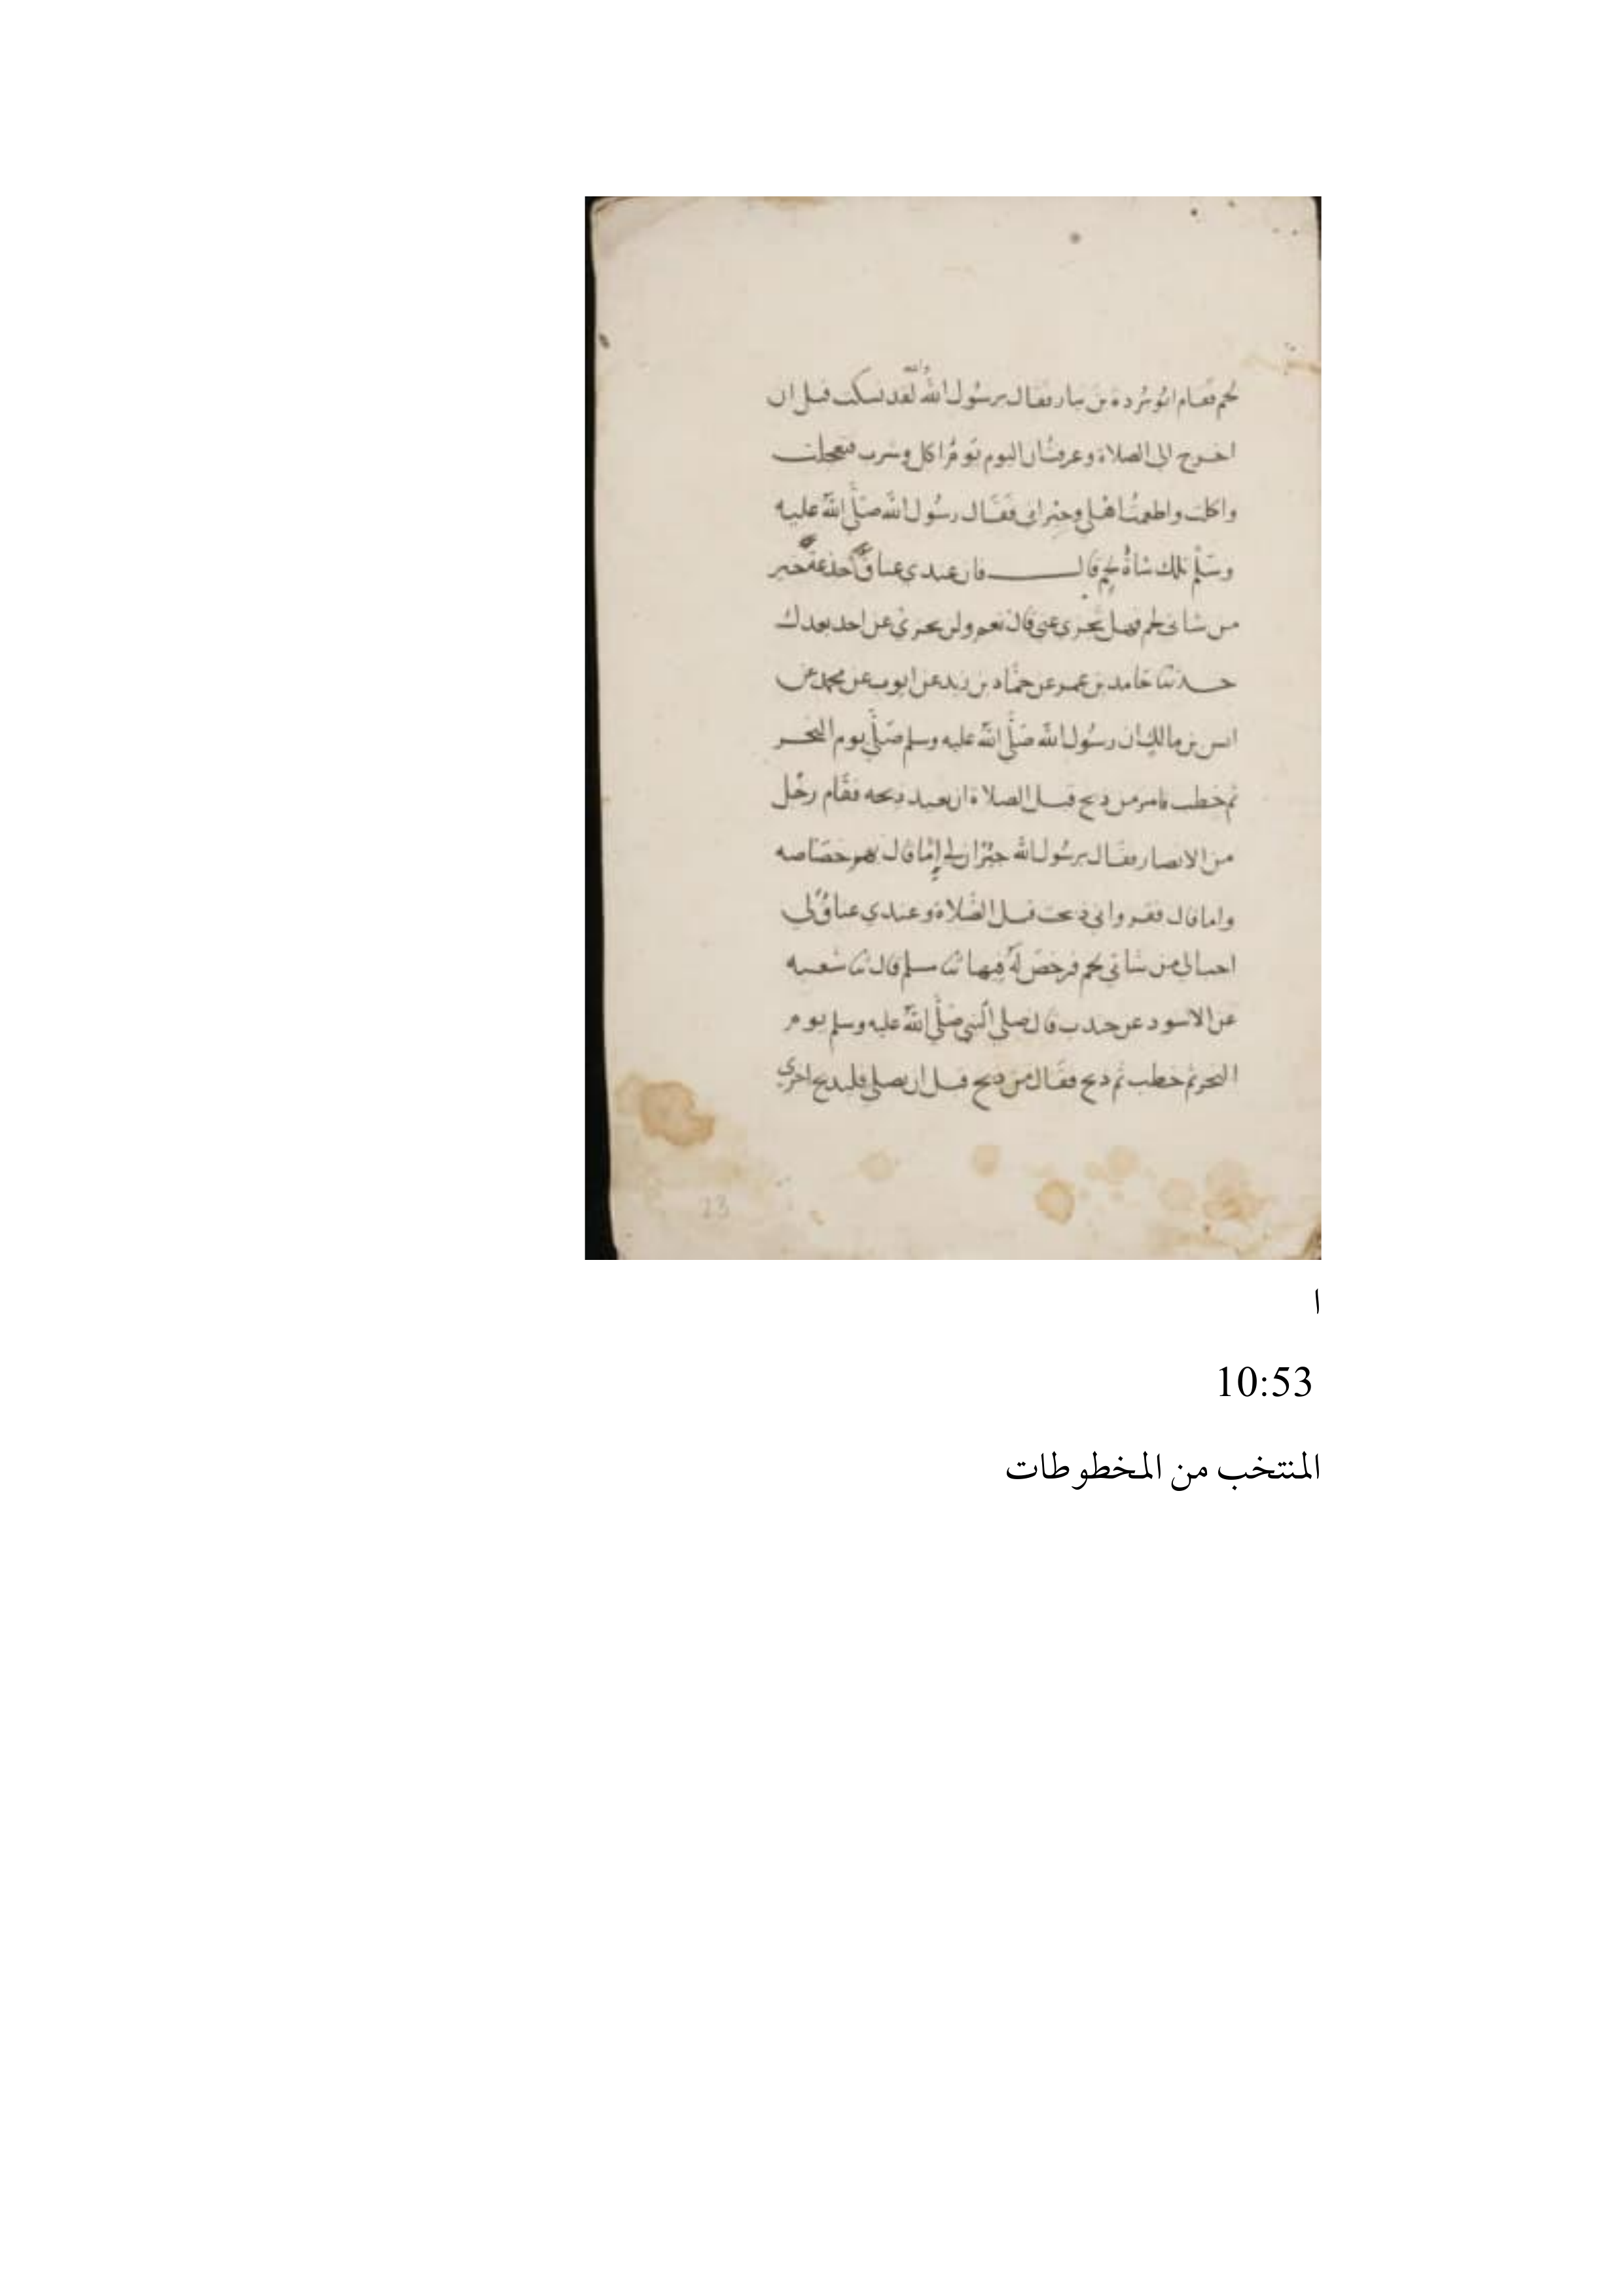 لحم فقام ابو بردة بن نيار فقال يرسول الله والله لقد نسكت قبل ان
اخرج الى الصلاة وعرفت ان اليوم يوم اكل وشرب فتعجلت
واكلت واطعمت اهلي وجيراني فقال رسول الله صلى الله عليه
وسلم تلك شاة لحم قال فان عندي عناق جذعة خير
من شاتى لحم فهل تجزي عني قال نعم ولن تجزي عن احد بعدك
حدثنا حامد بن عمر عن حماد بن زيد عن ايوب عن محمد عن
انس بن مالك ان رسول الله صلى الله عليه وسلم صلى يوم النحر
ثم خطب فامر من ذبح قبل الصلاة ان يعيد ذبحه فقام رجل
من الانصار فقال يرسول الله جيران لي اما قال بهم خصاصه
واما قال فقر واني ذبحت قبل الصلاة وعندي عناق لي
احب الي من شاتي لحم فرخص له فيها ثنا مسلم قال ثنا شعبه
عن الاسود عن جندب قال صلى النبي صلى الله عليه وسلم يوم
النحر ثم خطب ثم ذبح فقال من ذبح قبل ان يصلي فليذبح اخرى
23
ا
10:53
المنتخب من المخطوطات